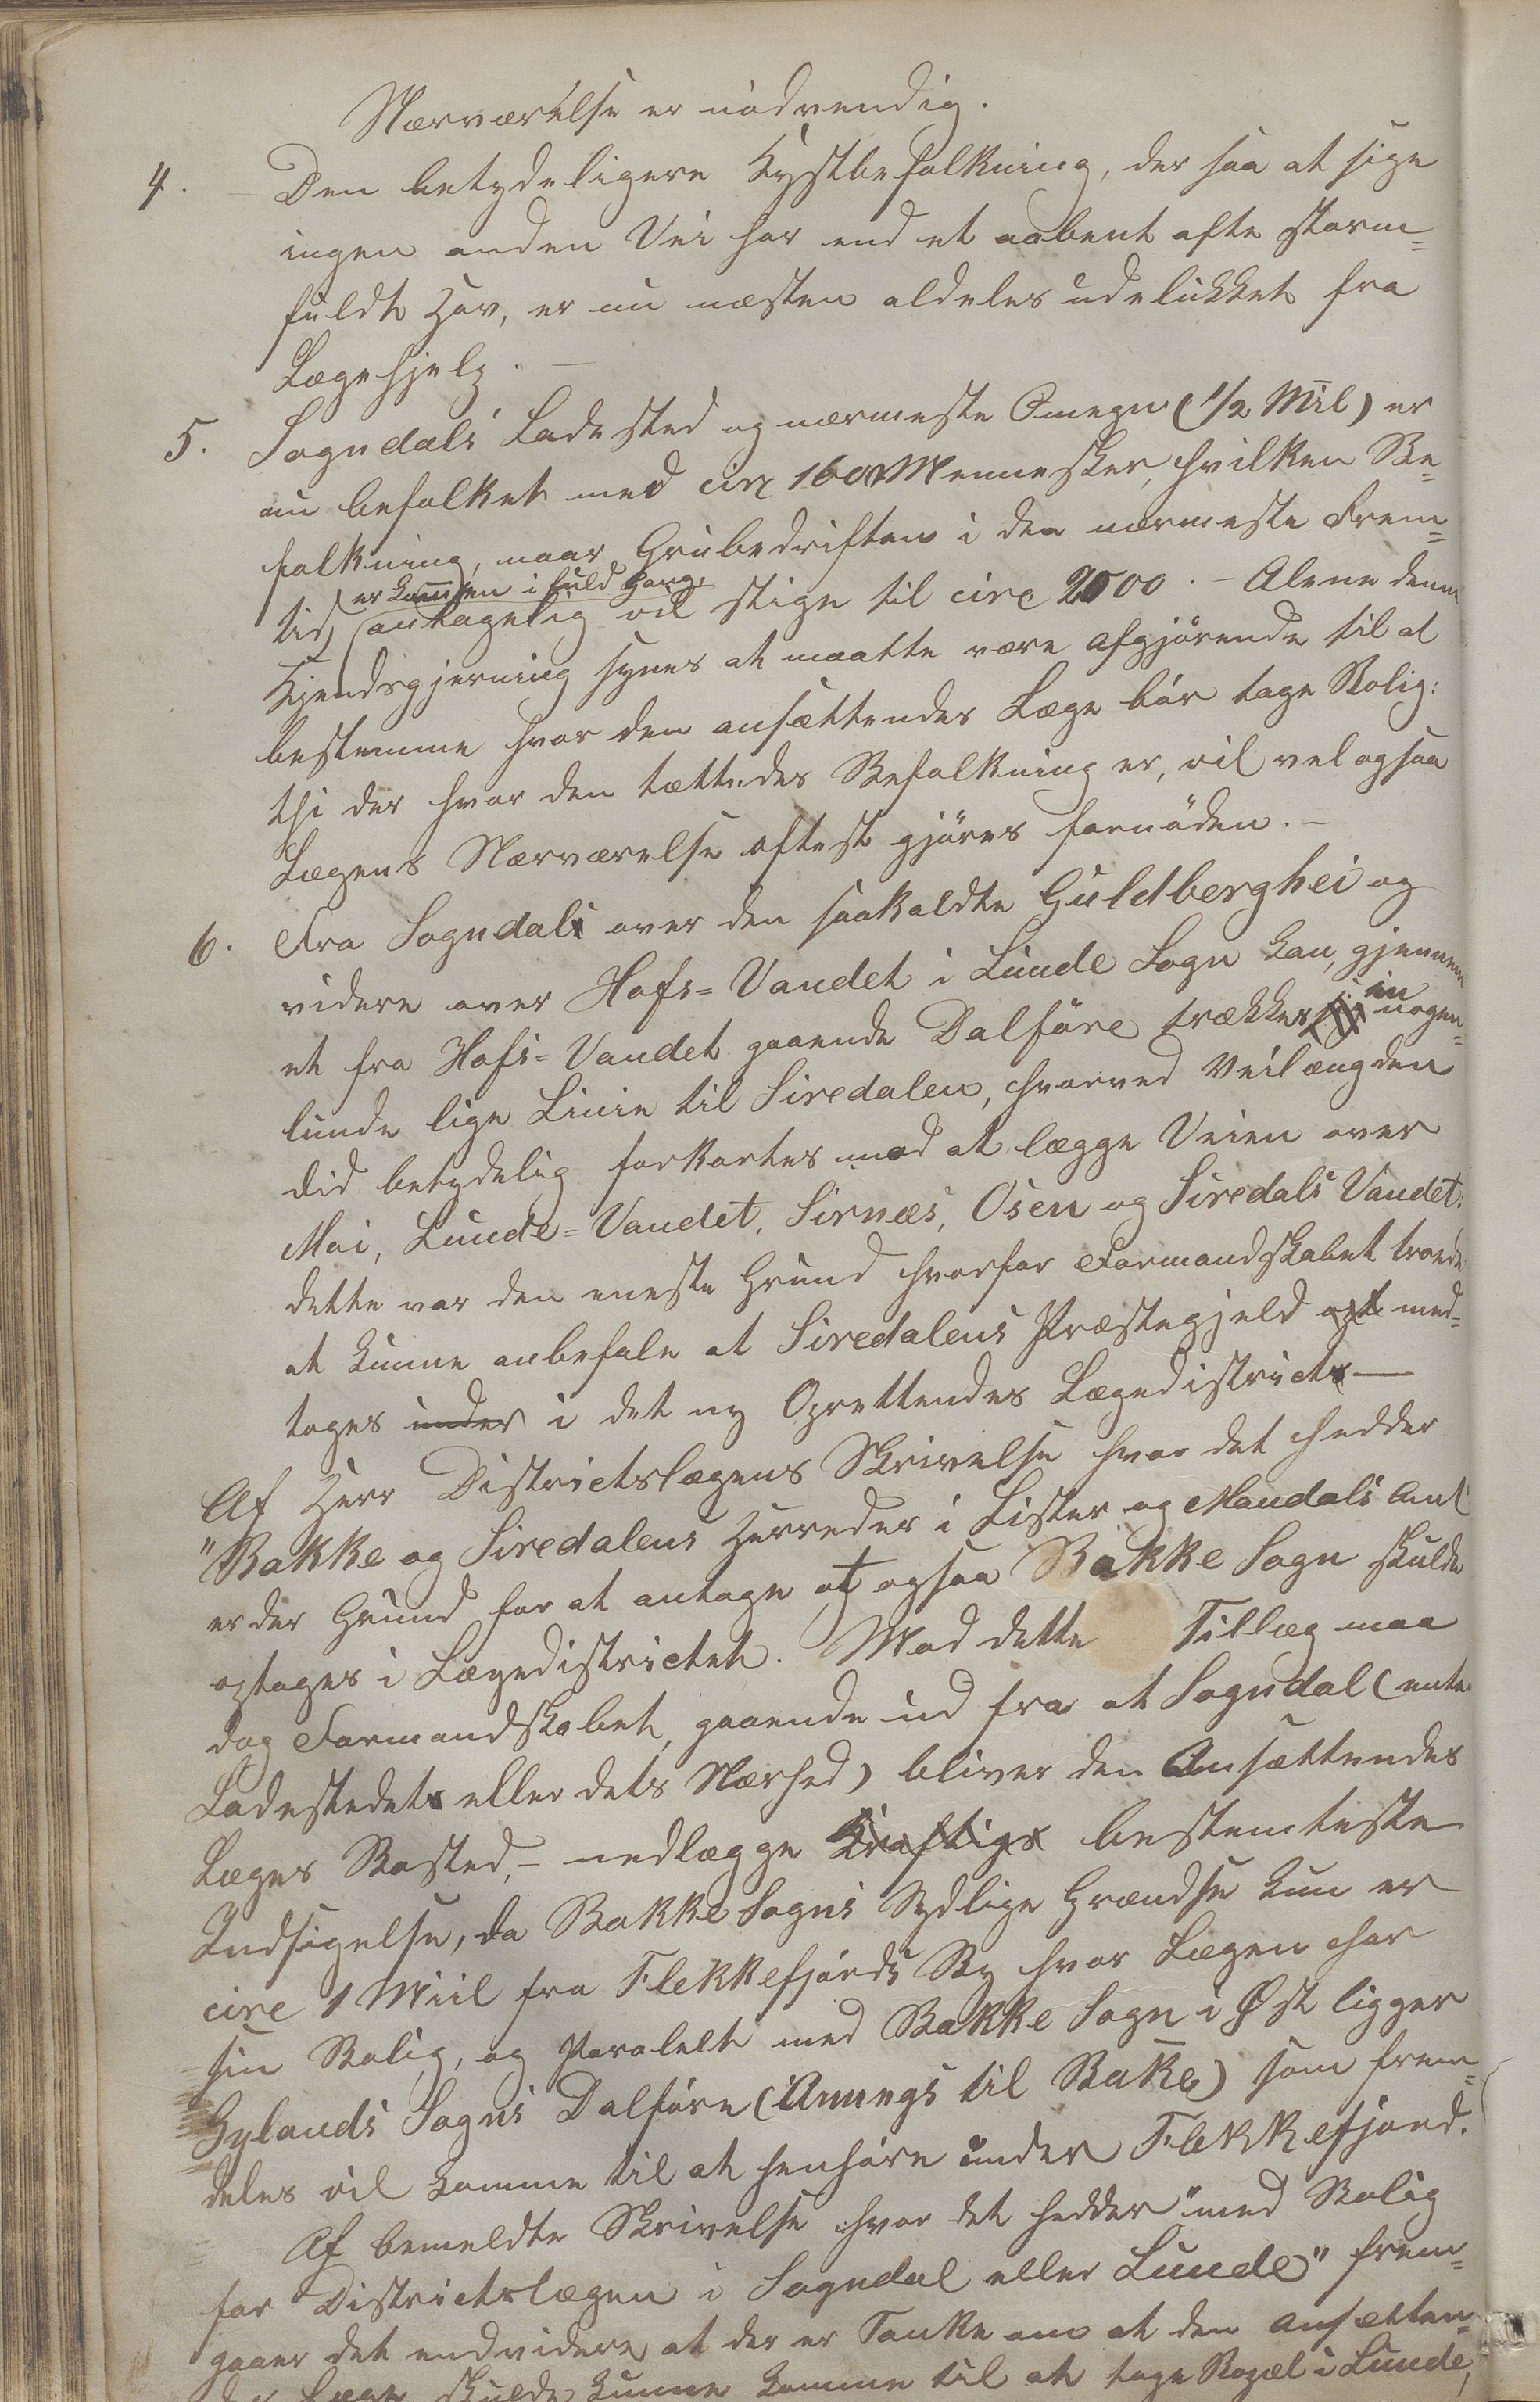 Nærværelse er nødvendig.
4. Den betydeligere Kystbefolkning, der saa at sige
ingen anden Vei har end et aabent ofte storm=
fuldt Hav, er nu næsten aldeles udelukket fra
Lægehjelp. —
5. Sogndals Ladested og nærmeste Omegn (1/2 Mil) er
nu befolket med circ 1600 Mennesker, hvilken Be=
folkning, naar Grubedriften i den nærmeste Frem=
er kommen i fuld Gang,
tid, antagelig vil stige til circ 2000. – Alene denne
Kjendsgjerning synes at maatte være afgjørende til at
bestemme hvor den ansættendes Læge bør tage Bolig:
thi der hvor den tættedes Befolkning er, vil vel ogsaa
Lægens Nærværelse oftest gjøres fornøden. –
6. Fra Sogndal over den saakaldte Guldberghei og
videre over Hofs=Vandet i Lunde Sogn kan, gjennem
et fra Hofs=Vandet gaaende Dalføre trækkes en nogen=
lunde lige Linie til Siredalen, hvorved Veilængden
did betydelig forkortes mod at lægge Veien over
Moi, Lunde=Vandet, Sirnæs, Osen og Siredals Vandet:
dette var den eneste Grund hvorfor Formandskabet troede
at kunne anbefale at Siredalens Præstegjeld opt med=
toges under i det ny Oprettendes Lægedistrict —
Af Herr Districtslægens Skrivelse hvor det hedder
"Bakke og Siredalens Herreder i Lister og Mandals Amt
er der Grund for at antage at ogsaa Bakke Sogn skulde
optages i Lægedistrictet. Mod dette Tillæg maa
dog Formandskabet, gaaende ud fra at Sogndal (enten
Ladestedet eller dets Nærhed) bliver den Ansættendes
Læges Bosted, – nedlægge Kraftigs bestemteste
Indsigelse, da Bakke Sogns Sydlige Grændse kun er
circ 1 Miil fra Flekkefjords By hvor Lægen har
sin Bolig, og paralelt med Bakke Sogn i Øst ligger
Gylands Sogns Dalføre (Annegs til Bakke) som frem=
deles vil komme til at henhøre under Flekkefjord.
Af bemeldte Skrivelse hvor det hedder "med Bolig
for Districtslægen i Sogndal eller Lunde" frem=
gaaer det endvidere, at der er Tanke om at den ansætten=
des Læge skulde kunne komme til at tage Bopæl i Lunde,